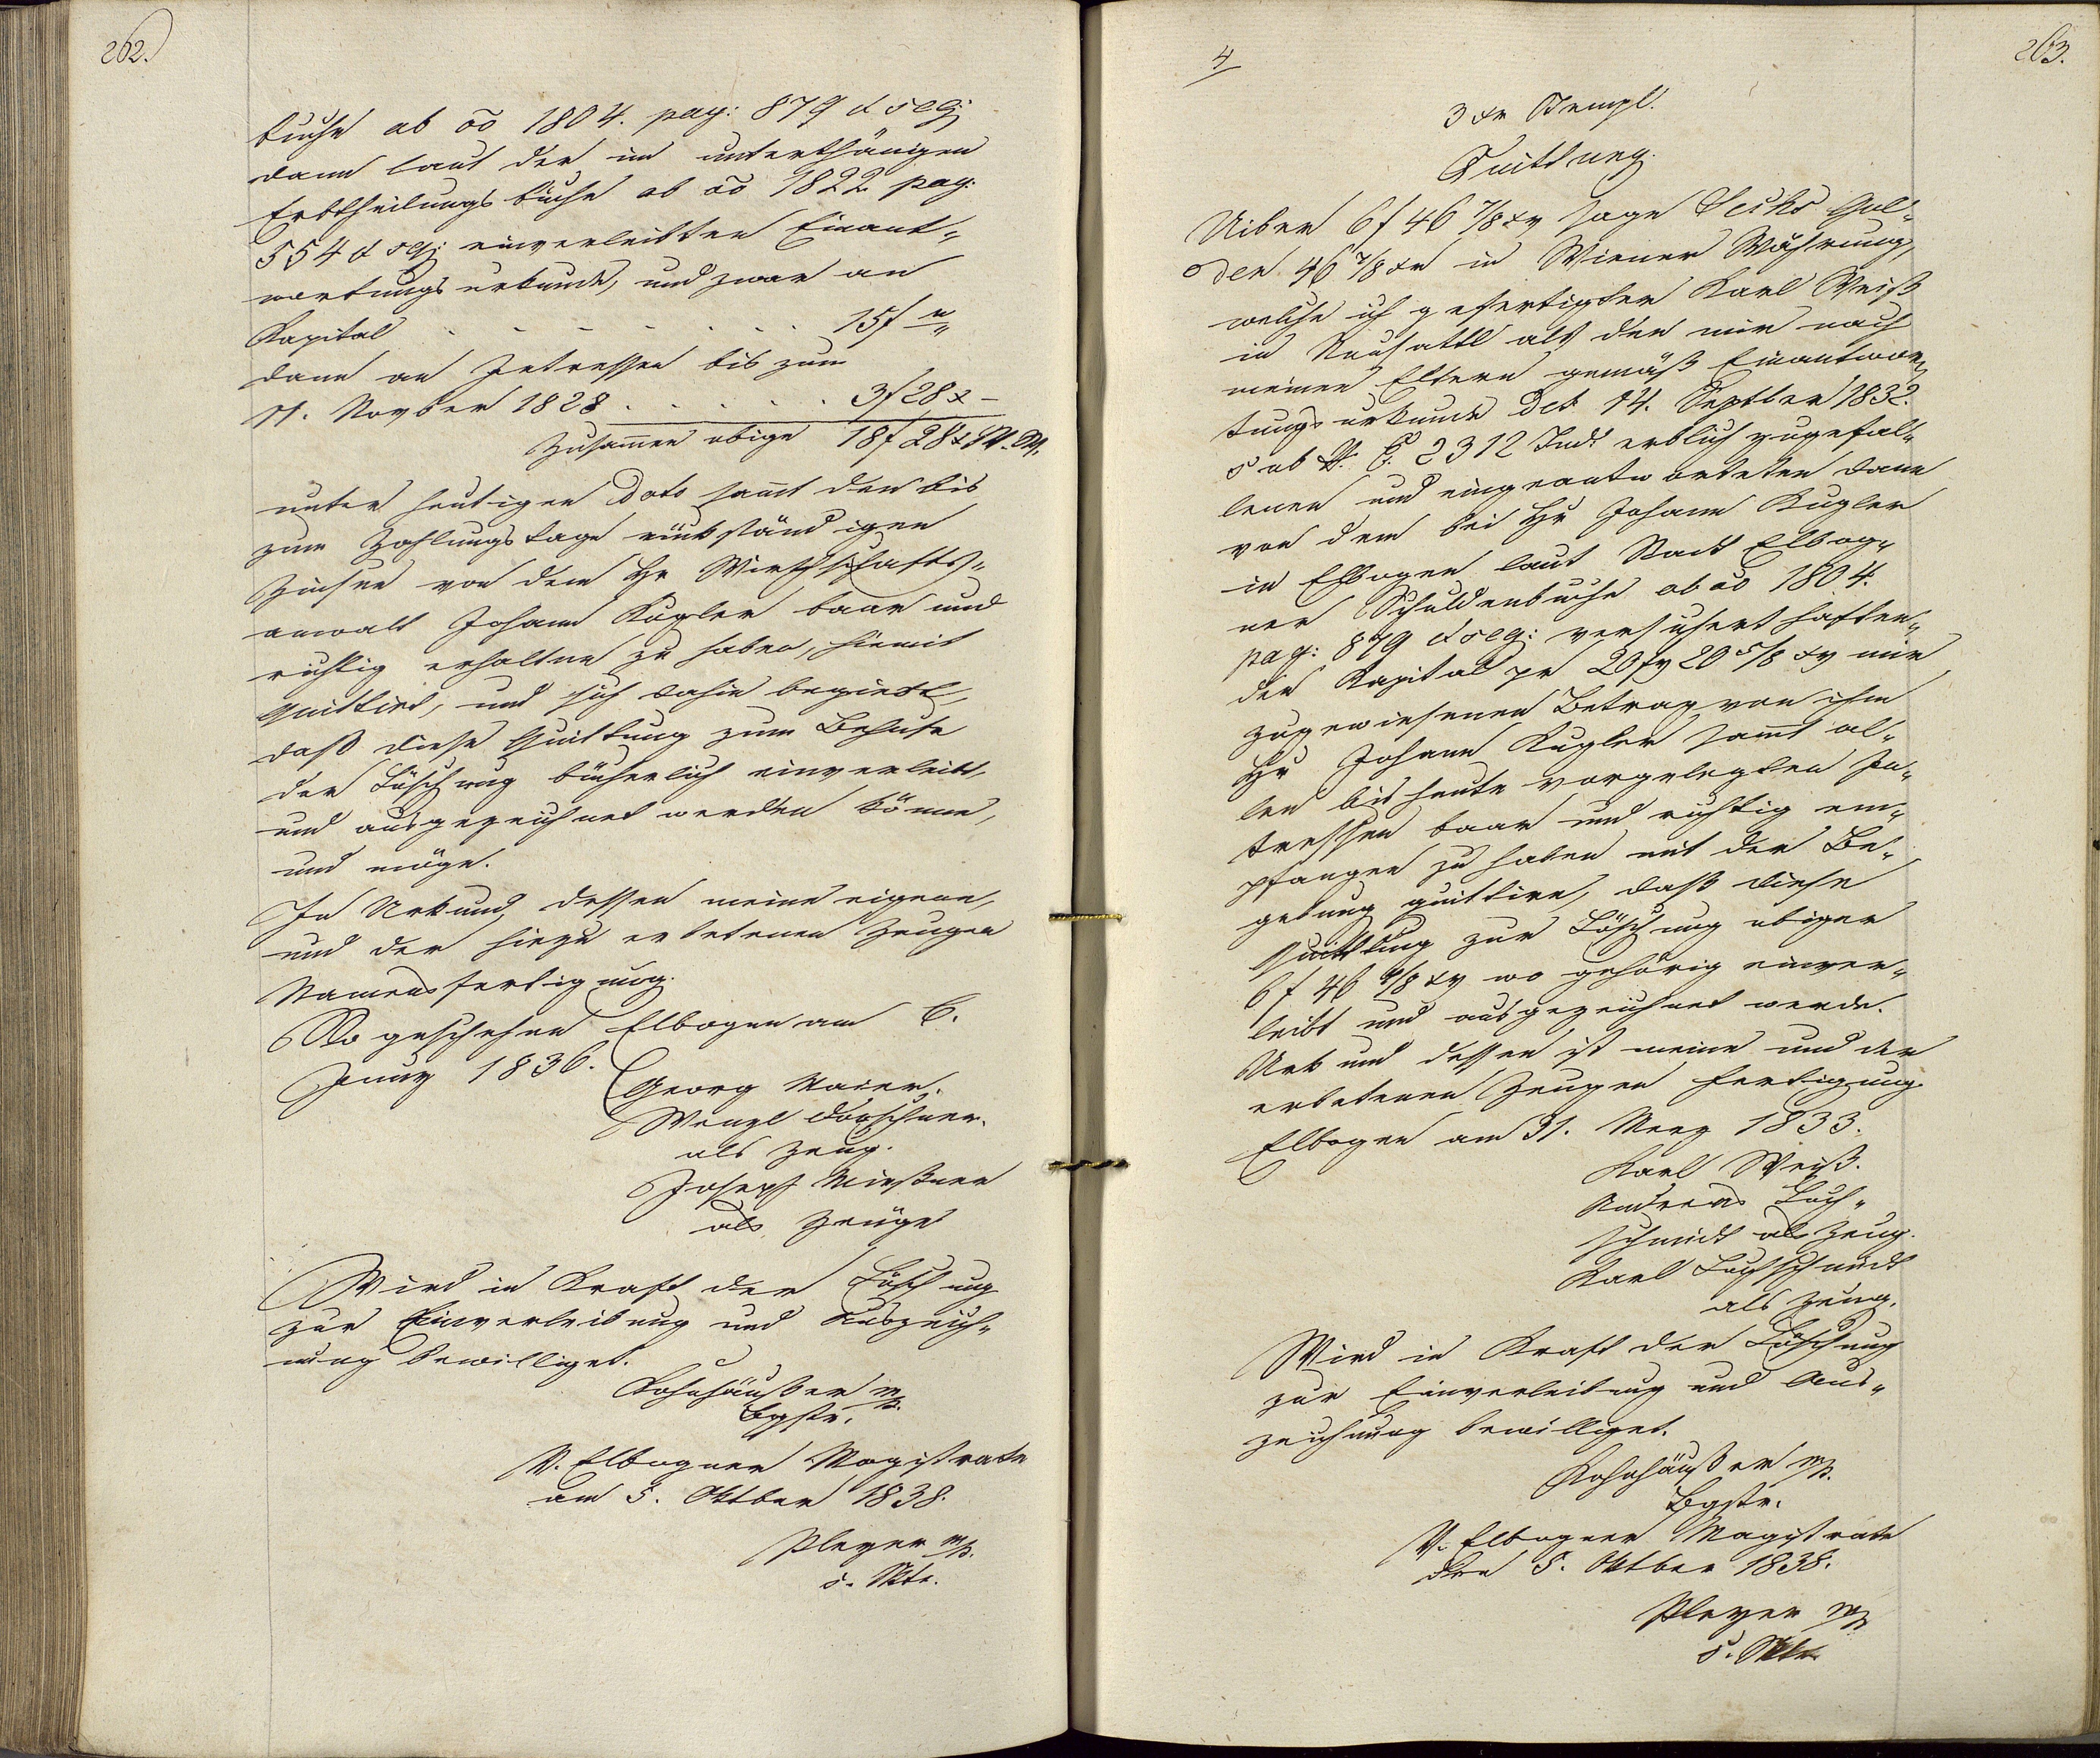 262.
buche ab ao 1804. pag: 879 & seq:
dann laut der im unterthänigen
Erbtheilungsbuche ab ao 1822 pag:
554 & seq: einverleibten Einant-
wortungsurkunde, und zwar an
Kapital . . . . . . . 15 f "
dann an Interessen bis zum
11. Novber 1828 . . . . . 3 f 28 x –
Zusamen obige 18 f 28 x W.W.
unter heutigen Dato samt den bis
zum Zahlungstage rückständigen
Zinsen von dem Hr Wirthschafts-
anwalt Johann Kugler baar und
richtig erhalten zu haben, hiemit
quittirt, und sich dahin begiebt,
daß diese Quittung zum Behufe
der Löschung bücherlich einverleibt,
und ausgezeichnet werden könne,
und möge.
In Urkund dessen meine eigene,
und der hiezu erbetenen Zeugen
Namensfertigung.
So geschehen Elbogen am 6.
Juny 1836.
Georg Maier.
Wenzl Dörschner.
als Zeug.
Joseph Meißner
als Zeuge
Wird in Kraft der Löschung
zur Einverleibung und Auszeich-
nung bewilliget.
Kohnhäuser mp.
Bgstr.
V. Elbogner Magistrate
am 5. Oktber 1838.
Pleyer mp.
s. Sktr.
4
263.
3 xr Stempl.
Quittung.
Uiber 6 f 46 7/8 xr sage Sechs Gul-
den 46 7/8 xr in Wiener Währung,
welche ich gefertigter Karl Weiß
in Neusattl als der mir nach
meinen Eltern gemäß Einantwor-
tungsurkunde Dct 14. Septber 1832.
sub N. E. 2312 Jud: erblich zugefal-
lenen und eingeantworteten dann
von dem bei Hr Johann Kugler
in Elbogen laut Stadt Elbog-
ner Schuldenbuche ab ao 1804.
pag: 879 & seq: versichert haften-
den Kapital pr 20 fr 20 5/8 xr mir
zugewiesenen Betrag von ihm
Hr Johann Kugler samt al-
len bis heute vorgelegten In-
tressen baar und richtig em-
pfangen zu haben mit der Be-
gebung quittire, daß diese
Quittung zur Löschung obiger
6 f 46 7/8 xr wo gehörig einver-
leibt und ausgezeichnet werde.
Urkund dessen ist meine und der
erbetenen Zeugen Fertigung.
Elbogen am 31. Merz 1833.
Karl Weiß.
Andreas Loch-
schmidt als Zeug.
Karl Lochschmidt
als Zeug.
Wird in Kraft der Löschung
zur Einverleibung und Aus-
zeichnung bewilliget.
Kohnhäuser mp.
Bgstr.
V. Elbogner Magistrate
den 5. Oktber 1838.
Pleyer mp
s. Sktr.